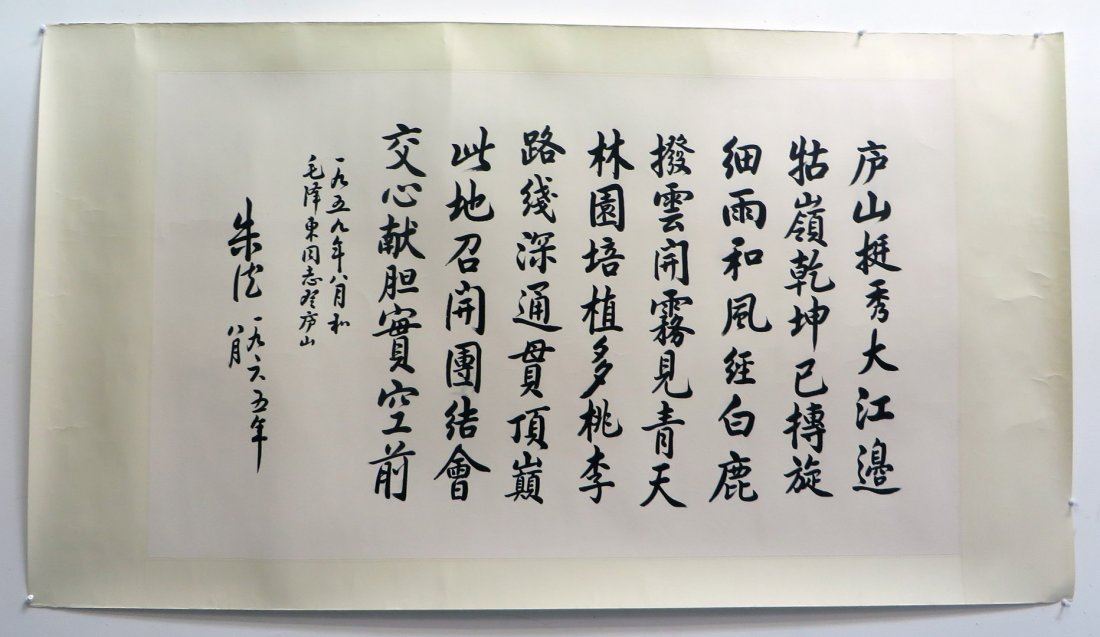 庐山挺秀大江邊
牯嶺乾坤已摶旋
细雨和風經白鹿
撥雲開霧見青天
林園培植多桃李
路綫深通貫頂巔
此地召開團结會
交心献胆實空前
一九五九年八月和
毛泽東同志登庐山
朱德
一九六五年
八月